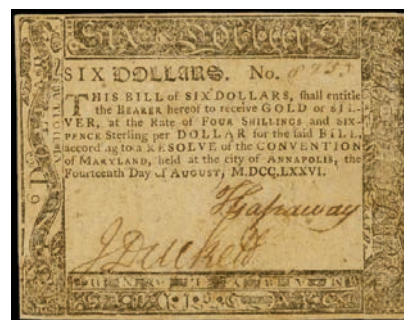 SIX DOLLARS
SIX DOLLARS. No. 8753
THIS BILL of SIX DOLLARS, shall entitle
the BEARER hereof to receive GOLD or SIL-
VER, at the Rate of FOUR SHILLINGS and SIX-
PENCE Sterling per DOLLAR for the said BILL,
according to a RESOLVE of the CONVENTION
of MARYLAND, held at the city of ANNAPOLIS, the
Fourteenth Day of AUGUST, M.DCC,LXXVI.
T Harraway
J Duckett